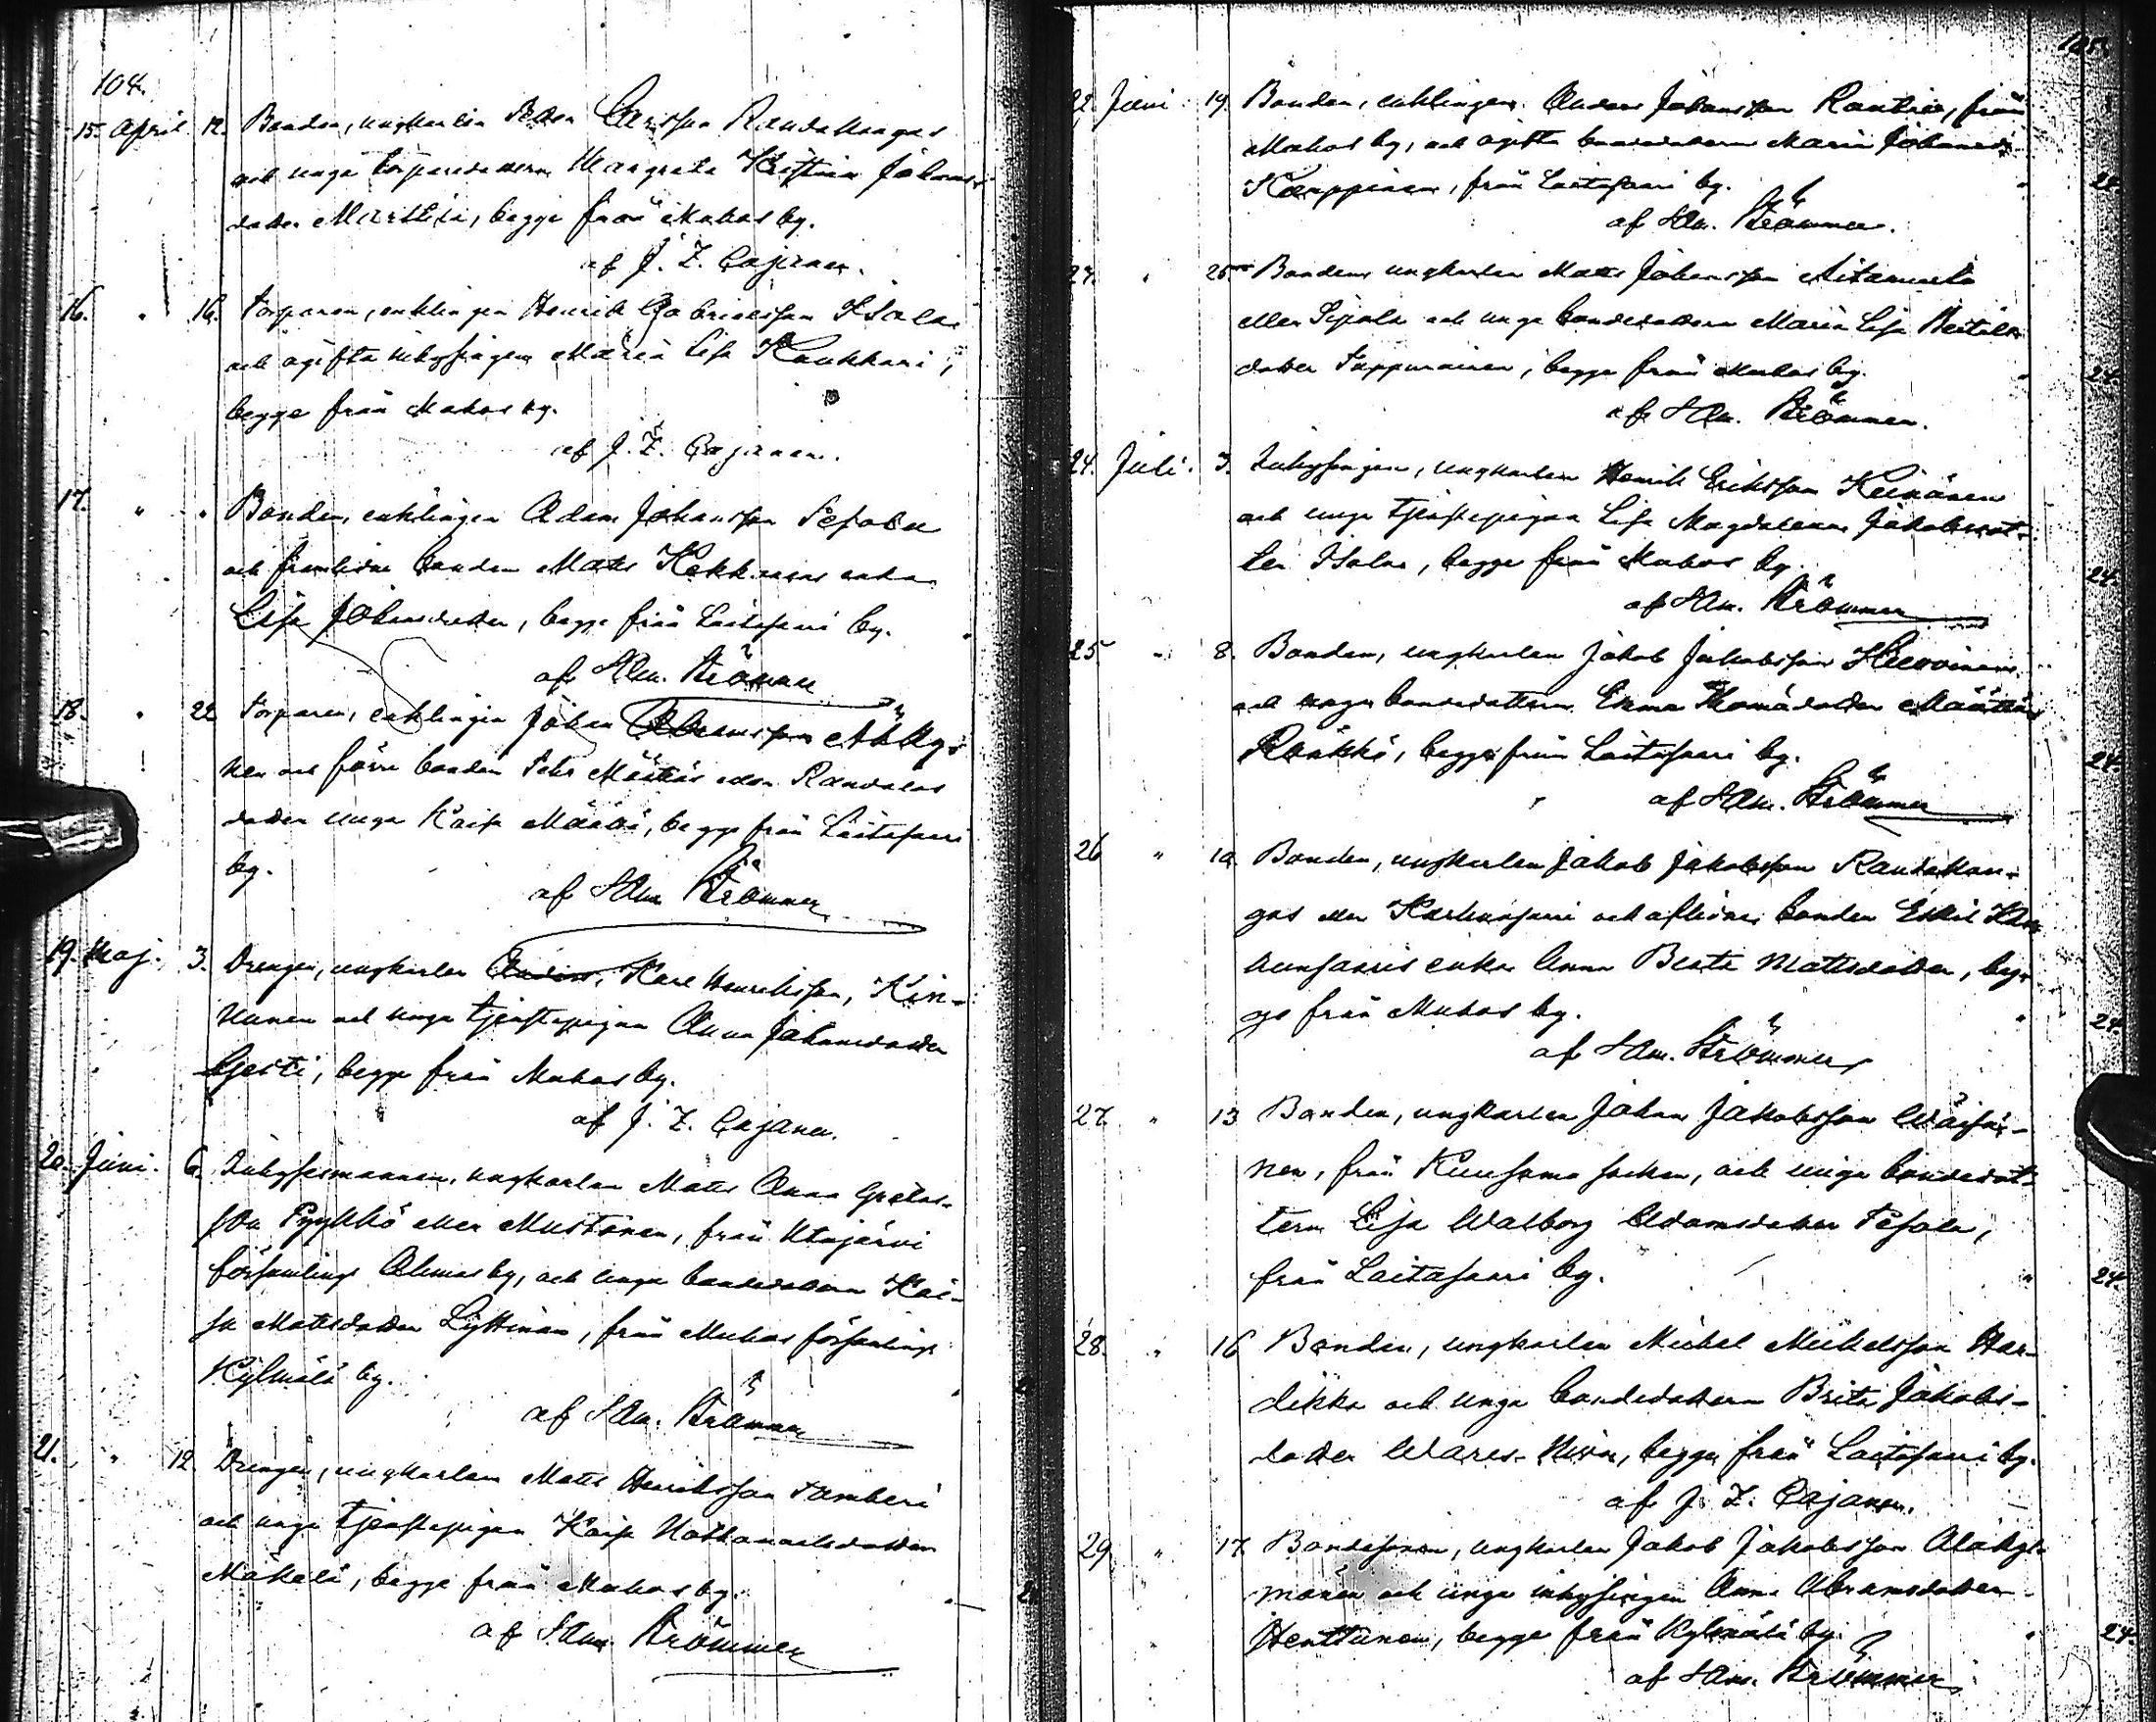 104.
15. April 12. Bonden, ungkarlen Carlsson Randakangas
och unga torparedottern Margreta Kristina Johans-
dotter Marttila, begge från Muhos by.
af J. Z. Cajanen.
16. " 16. Torparen, enklingen Henrik Gabrielsson Isola
och ogifta inhysingen Maria Lisa Kaukkari,
begge från Muhos by.
af J. Z. Cajanen.
17. " " Bonden, enklingen Adam Johansson Pesola
och framlidne bonden Matts Kekkonens enka
Lisa Johansdotter, begge från Laitasaari by.
af Alm. Krömmer
18. " 22 Torparen, enklingen Johan Abramsson
nen och förre bonden Määttäs
dotter unga Kaisa Määttä, begge från Laitasaari
by.
af Alm. Krömmer
19. Maj. 3. Drengen, ungkarlen Karl Henriksson, Kin-
nunen och unga tjenstepigan Anna Johansdotter
begge från Muhos by.
af J. Z. Cajanen.
20. Juni. 6. Inhysesmannen, ungkarlen Matts Anna Gretas-
son Pyykkö eller Mustonen, från Utajärvi
församlings Ahmas by, och unga bondedottern Kai-
sa Mattsdotter Lyttinen, från Muhos församlings
Kylmälä by.
af Alm. Krömmer
21. " 12. Drengen, ungkarlen Matts Henriksson Tamberi
och unga tjenstepigan Kaisa
Mäkelä, begge från Muhos by.
af Alm. Krömmer
105.
22. Juni 19. Bonden, enklingen Anders Johansson Rautio, från
Muhos by, och ogifta bondedottern Maria Johansd.
Karppinen, från Laitasaari by. " 24.
af Alm. Krömmer.
24. " 25 Bonden, ungkarlen Matts Johansson
eller Sipola och unga bondedottern Maria Lisa
dotter Tuppurainen, begge från Muhos by. " 24.
af Alm. Krömmer.
24. Juli. 3. Inhysingen, ungkarlen Henrik Eriksson Keinänen
och unga tjenstepigan Lisa Magdalena Jakobsdot-
ter Isola, begge från Muhos by. 24.
af Alm. Krömmer
25 " 8. Bonden, ungkarlen Jakob Jakobsson Huovinen
och unga bondedottern Emma Thomasdotter Määttä
begge från Laitasaari by. 24.
af Alm. Krömmer
26 " 10 Bonden, ungkarlen Jakob Jakobsson Randakan-
gas eller Karhunsaari och aflidne bonden
hunsaaris enka Anna Beata Mattsdotter, beg-
ge från Muhos by. " 24.
af Alm. Krömmer
27. " 13 Bonden, ungkarlen Johan Jakobsson Wäisä-
nen, från Kuusamo socken, och unga bondedot-
tern Lisa Walborg Adamsdotter Pesola,
från Laitasaari by. " 24
28. " 16 Bonden, ungkarlen Mickel Mickelsson Har-
dikka och unga bondedottern Brita Jakobs-
dotter Wares-Niva, begge från Laitasaari by.
af J. Z. Cajanen.
29 " 17. Bondesonen, ungkarlen Jakob Jakobsson Alakyl-
mänen och unga inhysingen Anna Abramsdotter
Henttunen, begge från Kylmälä by. " 24.
af Alm. Krömmer